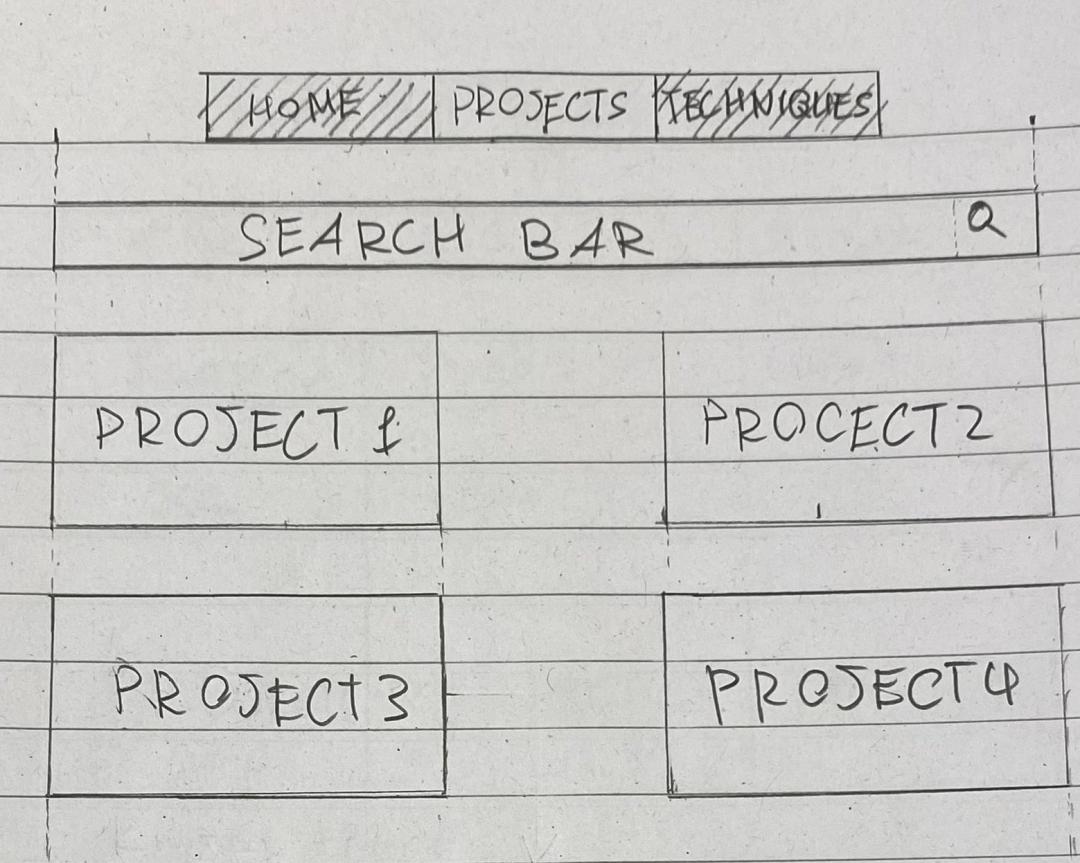 HOME PROJECTS TECHNIQUES
SEARCH BAR
PROJECT 1 PROCECT 2
PROJECT 3 PROJECT 4